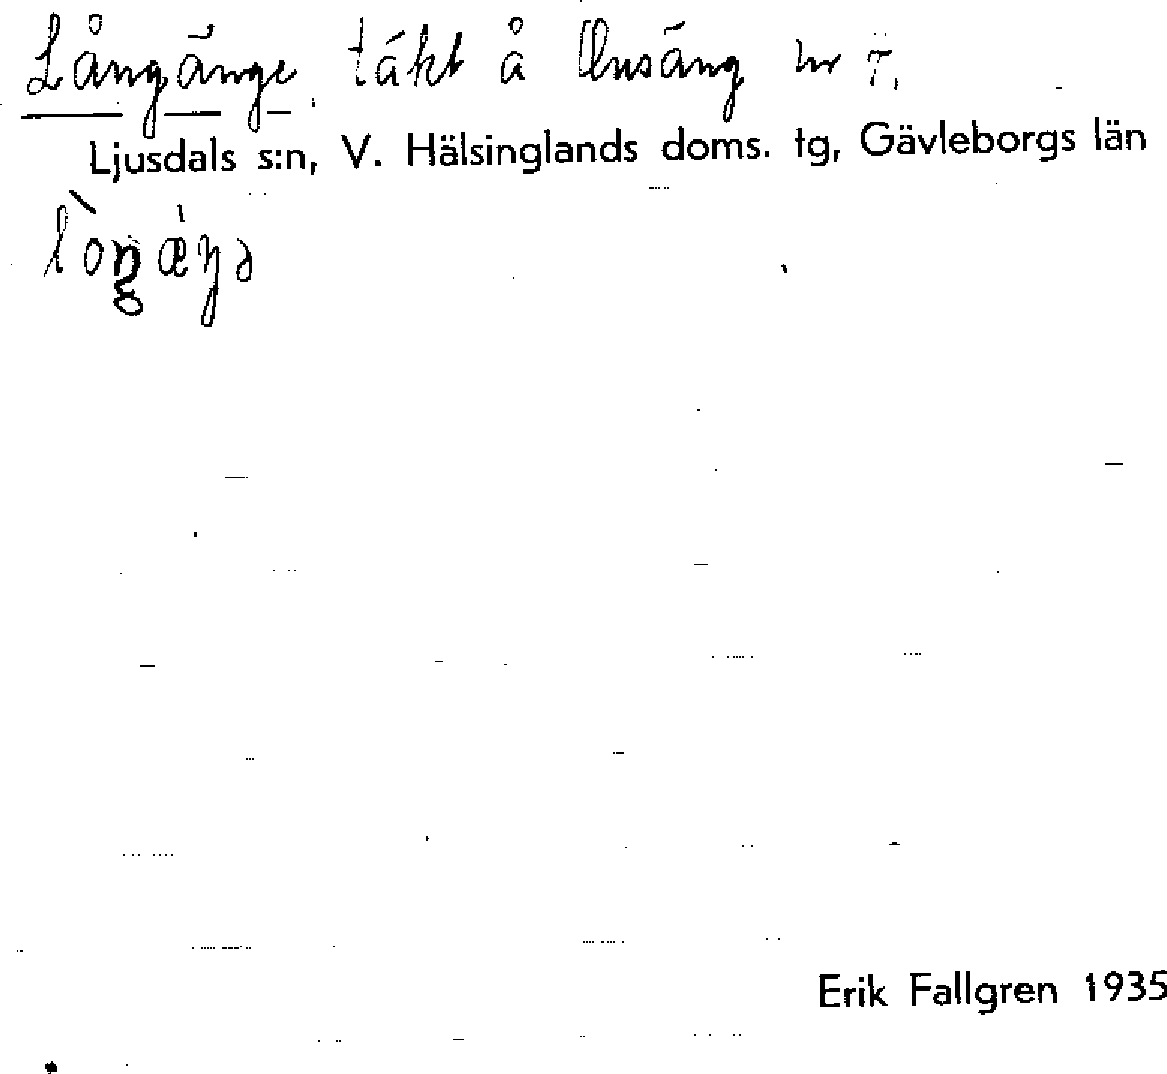 Långänge, täkt å Onsäng nr 7,
Ljusdals s:n, V. Hälsinglands doms. tg, Gävleborgs län
Erik Fallgren 1935